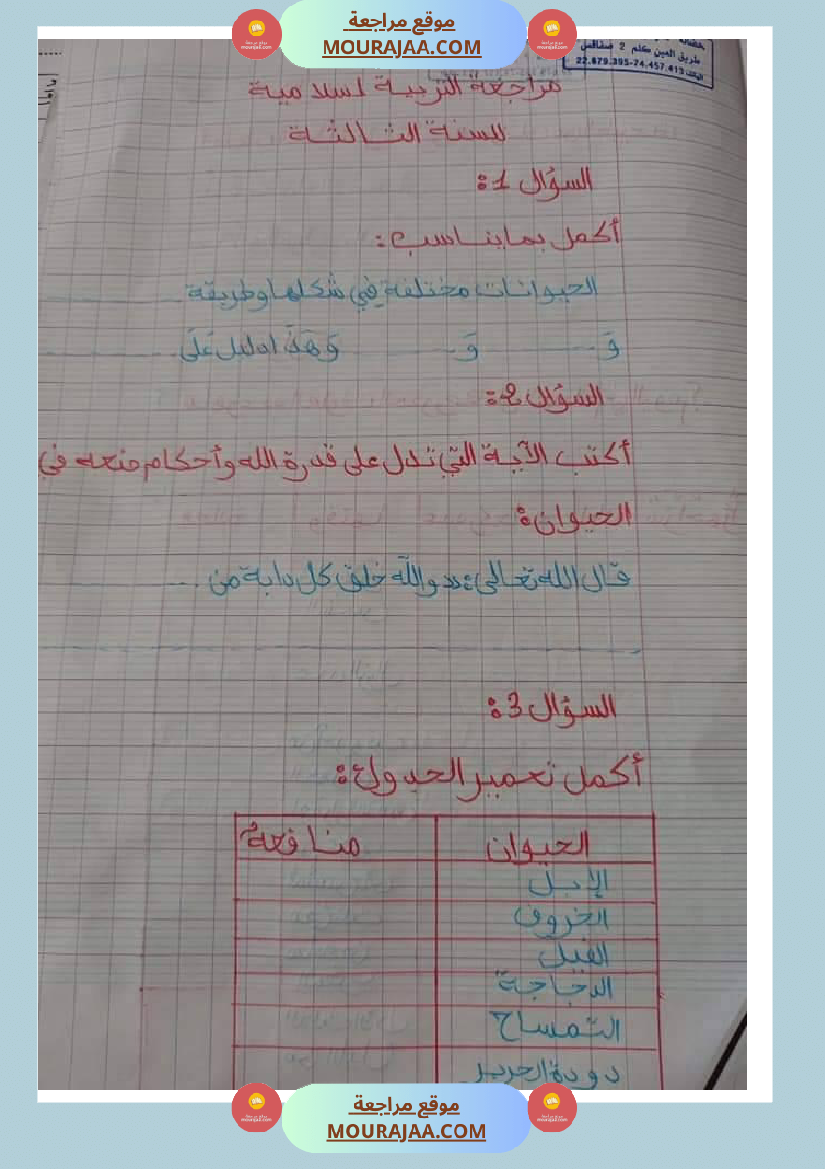 موقع مراجعة
MOURAJAA.COM
طريق العين كلم 2 صفاقس
22.879.393-74.457.413
مراجعة التربية لسلامية
للسنة الثالثة
السؤال 1:
أكمل بما يناسب:
الحيوانات مختلفة في شكلها وطريقة
وَ وَ وَهَذَا دليل عَلَى
السؤال 2:
أكتب الآية التي تدل على قدرة الله وأحكام صنعه في
الحيوان:
قال الله تعالى: "والله خلق كل دابة من .
السؤال 3:
أكمل تعمير الجدول:
الحيوان منافعهُ
الإبل
الخروف
الفيل
الدجاجة
التمساح
دودة الحرير
موقع مراجعة
MOURAJAA.COM